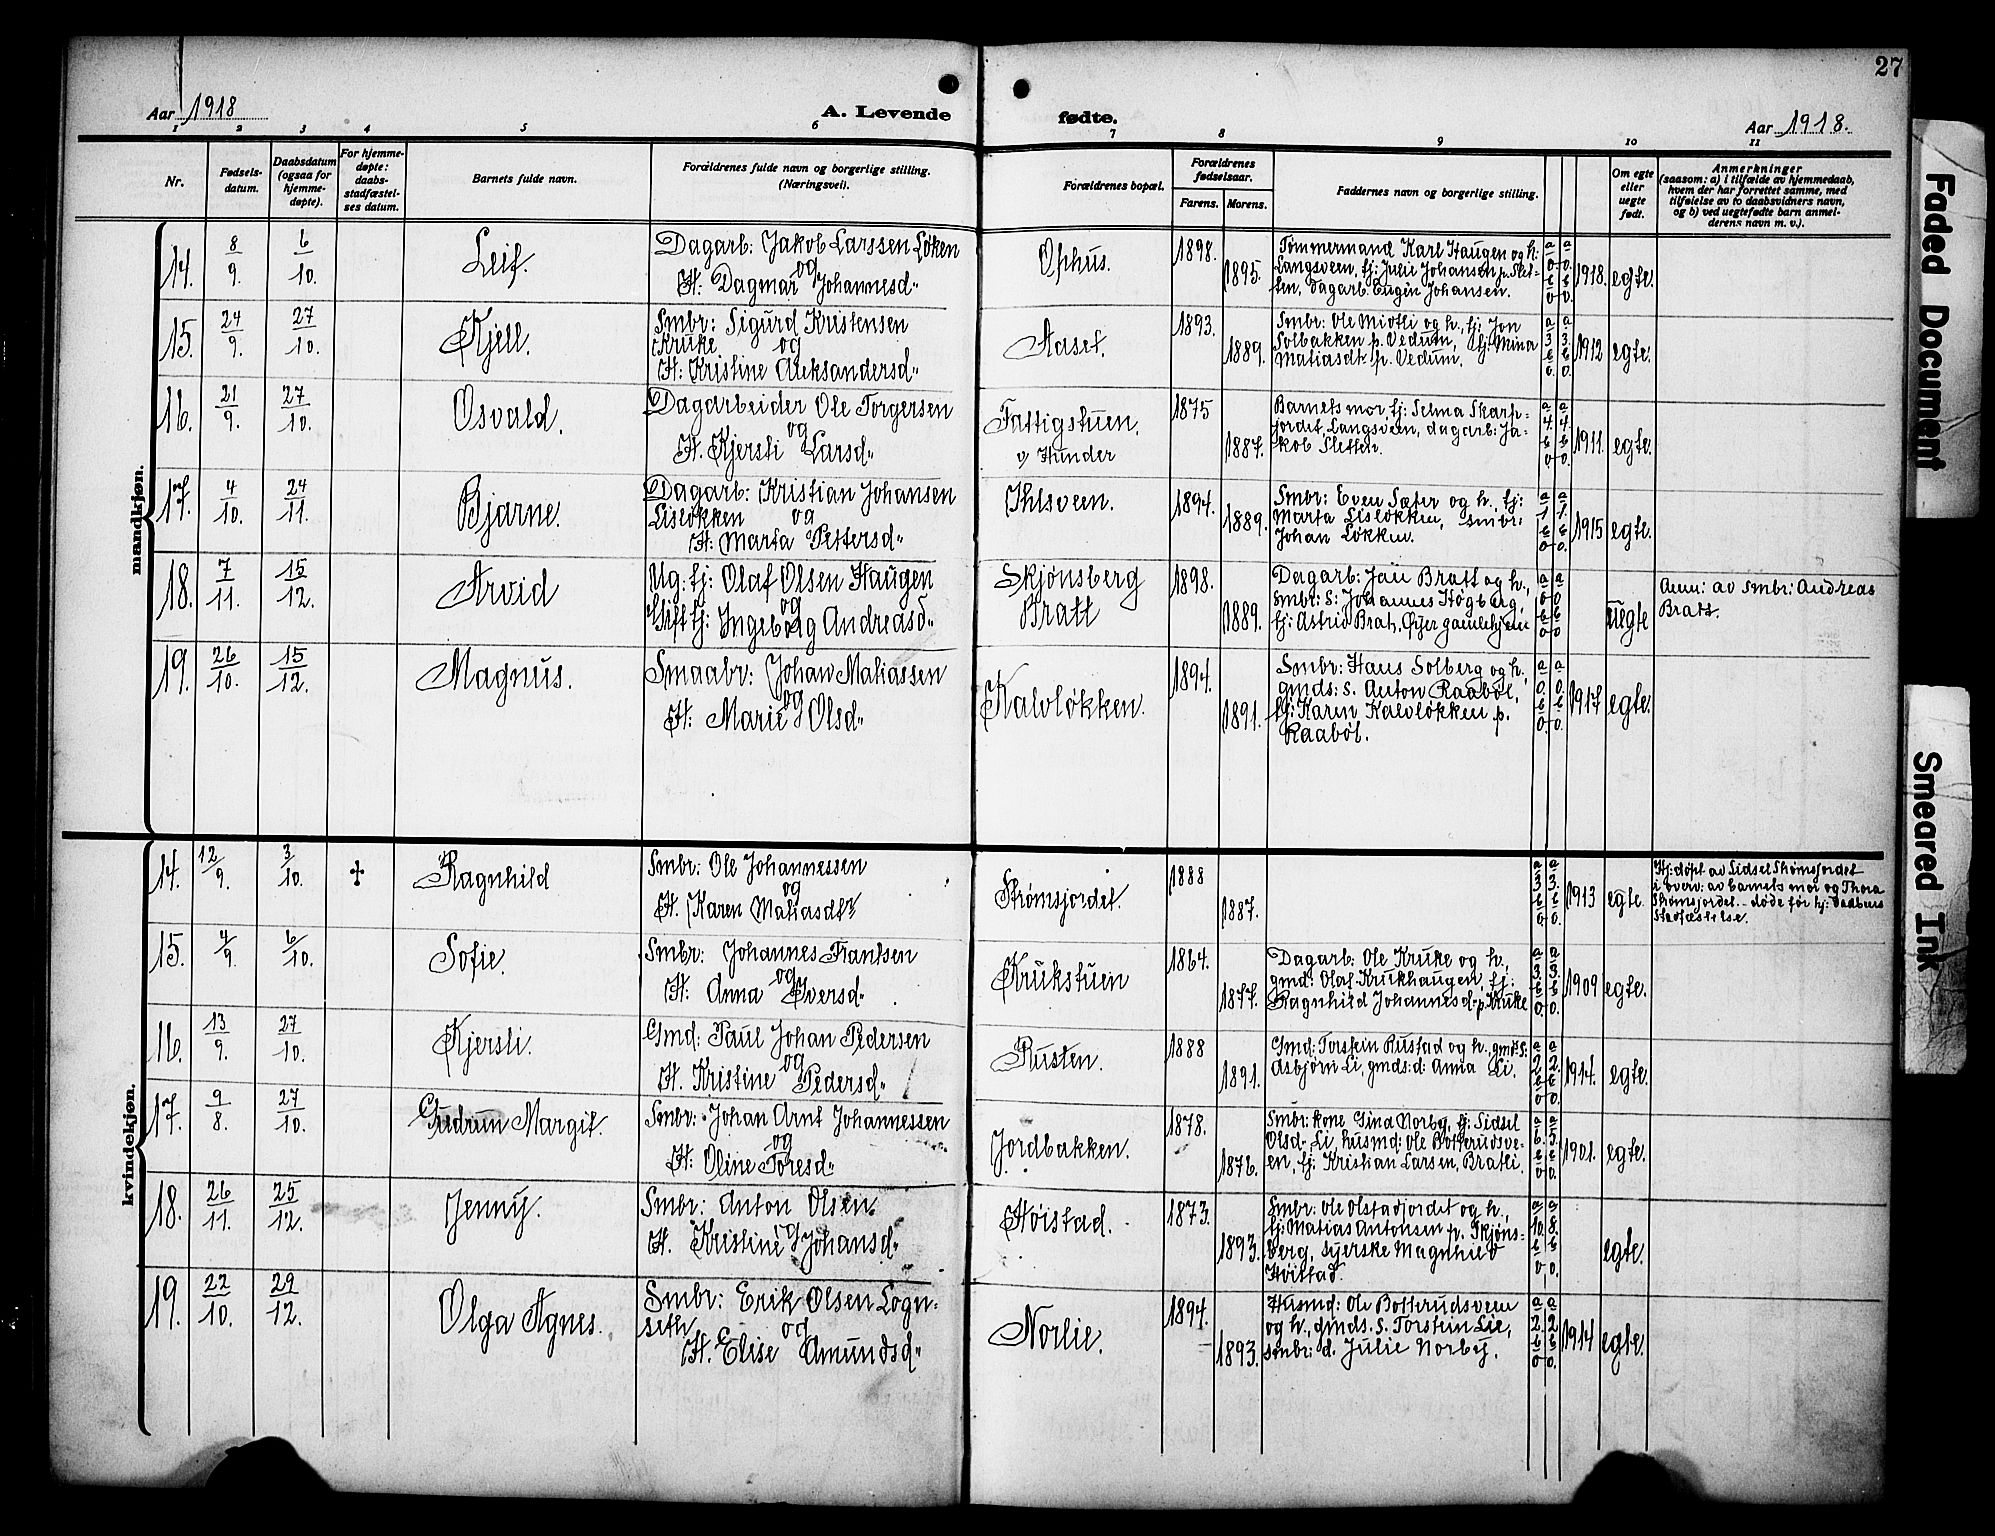 27
Aar 1918
A. Levende
fødte.
Aar 1918.
1 2 3 4 5 6 7 8 9 10 11
Nr.
Fødsels-
datum.
Daabsdatum
(ogsaa for
hjemme-
døpte).
For hjemme-
døpte:
daabs-
stadfæstel-
ses datum.
Barnets fulde navn.
Forældrenes fulde navn og borgerlige stilling.
(Næringsvei).
Forældrenes bopæl.
Forældrenes
fødselsaar.
Farens. Morens.
Faddernes navn og borgerlige stilling.
Om egte
eller
uegte
født.
Anmerkninger
(saasom: a) i tilfælde av hjemmedaab,
hvem der har forrettet samme, med
tilføielse av to daabsvidners navn,
og b) ved uegtefødte barn anmel-
derens navn m. v.).
mandkjøn.
14. 8/9. 6/10. Leif.
Dagarb: Jakob Larssen Løken
og
H: Dagmar Johannesd"
Ophus.
1898. 1895.
Tømmermand Karl Haugen og h.
Langsveen, tj: Julie Johansen p. Slet-
ten, dagarb. Eugen Johansen.
a 0. b 0 a 0. b 0. 1918. egte.
15. 24/9. 27/10. Kjell.
Smbr: Sigurd Kristensen
Kruke og
H: Kristine Aleksandersd"
Aaset.
1893. 1889.
Smbr: Ole Midtli og h., tj: Jon
Solbakken p. Vedum, tj: Mina
Matiasdt. p. Vedum.
a 3 b 0. a 3. b 0. 1912 egte.
16. 21/9. 27/10. Osvald.
Dagarbeider Ole Torgersen
og
H. Kjersti Larsd"
Fattigstuen.
v/ Hunder
1875 1887.
Barnets mor, tj: Selma Skarp-
jordet, Langsveen, dagarb: Ja-
kob Sletten.
a 4. b 0 a 4. b 0. 1911. egte.
17. 4/10. 24/11. Bjarne.
Dagarb: Kristian Johansen
Lisløkken og
H: Marta Pettersd"
Ihlsveen.
1894. 1889.
Smbr: Even Sæter og h., tj:
Marta Lisløkken, smbr:
Johan Løkken.
a 1. b 0 a 1. b 0. 1915 egte.
18. 7/11. 15/12. Arvid
Ug: tj: Olaf Olsen Haugen
og
Gift tj: Ingeborg Andreasd"
Skjønsberg
Bratt
1898. 1889.
Dagarb: Jau Bratt og h.,
smbr: s: Johannes Høgberg,
tj: Astrid Brat, Øyer gamlehjem
a 0 b 0 a 0 b 0 uegte
Anm: av smbr: Andreas
Bratt.
19. 26/10. 15/12. Magnus.
Smaabr: Johan Matiassen
og
H. Marie Olsd"
Kalvløkken.
1894. 1891.
Smbr: Hans Solberg og h.,
gmds: s. Anton Raabøl,
tj: Karen Kalvløkken p.
Raabøl.
a 0. b 0. a 0. b 0. 1917 egte.
kvindekjøn.
14. 12/9. 3/10. Ragnhild
Smbr: Ole Johannessen
og
H. Karen Matiasdtr
Strømsjordet.
1888 1887.
a 3. b 0. a 3. b 0. 1913 egte
Hj: døpt av Sidsel Strømsjordet
i overv: av barnets mor og Thora
Strømsjordet. - døde før hj: daabens
Stadfæstelse.
15. 4/9. 6/10. Sofie.
Smbr: Johannes Frantsen
og
H: Anna Iversd"
Krukstuen
1864. 1877.
Dagarb: Ole Kruke og h.,
gmd: Olaf Krukhaugen, tj:
Ragnhild Johannesd" p. Kruke
a 3 b 0. a 3. b 0. 1909 egte.
16. 13/9. 27/10. Kjersti.
Gmd: Paul Johan Pedersen
og
H. Kristine Pedersd"
Rusten.
1888 1891.
Gmd: Torstein Rustad og h., gmds: s:
Asbjørn Li, gmds: d: Anna Li.
a 2 b 0 a 2. b 0. 1914. egte.
17. 9/8. 27/10. Gudrun Margit.
Smbr: Johan Arnt Johannessen
og
H: Oline Toresd"
Jordbakken.
1878. 1876.
Smbr: kone Gina Norby, tj: Sidsel
Olsd" Li, husmd: Ole Botterudsve-
en, tj: Kristian Larsen, Bratli.
a 6. b 0 a 5. b 0. 1901. egte.
18. 26/11. 25/12. Jenny.
Smbr: Anton Olsen
og
H. Kristine Johansd"
Høistad.
1873. 1893.
Smbr: Ole Olstadjordet og h.,
tj: Matias Antonsen p. Skjøns-
berg, syerske Magnhild
Høistad.
a 10. b 0 a 8. b 0. egte.
19. 22/10. 29/12. Olga Agnes.
Smbr: Erik Olsen Logn-
seth og
H. Elise Amundsd"
Norlie.
1894. 1893.
Husmd: Ole Botterudsveen
og h., gmds. s. Torstein Lie,
smbr: d. Julie Norby.
a 2. b 0 a 2. b 0. 1914 egte.
Faded Document
Smeared Ink